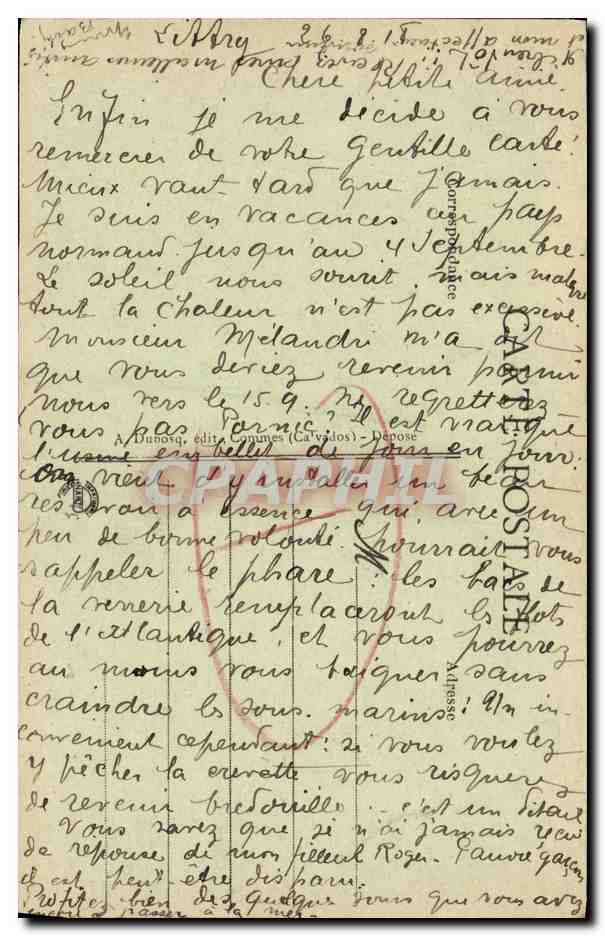 Littry
Chère petite amie.
Enfin je me décide à vous
remercier de votre gentille carte!
Mieux vaut tard que jamais.
Je suis en vacances au pays
normand jusqu'au 4 septembre.
Le soleil nous sourit mais malgré
tout la chaleur n'est pas excessive.
Monsieur Mélandri m'a dit
que vous deviez revenir parmi
nous vers le 15.9. Ne regrettez
vous pas Pornic? Il est vrai que
l'usine embellit de jour en jour.
On vient d'y installer un beau
réservoir à essence qui avec un
peu de bonne volonté pourrait vous
rappeler le phare: les bacs de
la verrerie remplaceront les flots
de l'Atlantique, et vous pourrez
au moins vous baigner sans
craindre les sous-marins! Un in-
convénient cependant: si vous voulez
y pêcher la crevette vous risquerez
de revenir bredouille... c'est un détail
Vous savez que je n'ai jamais reçu
de réponse de mon filleul Roger. Pauvre garçon
il est peut-être disparu.
Profitez bien des quelques jours que vous avez
encore à passer à la mer.
et mon affectueux
meilleures amitiés
CARTE POSTALE
Correspondance
Adresse
M
A. Dubosq, édit., Commes (Calvados) - Déposé
CPAPHIL